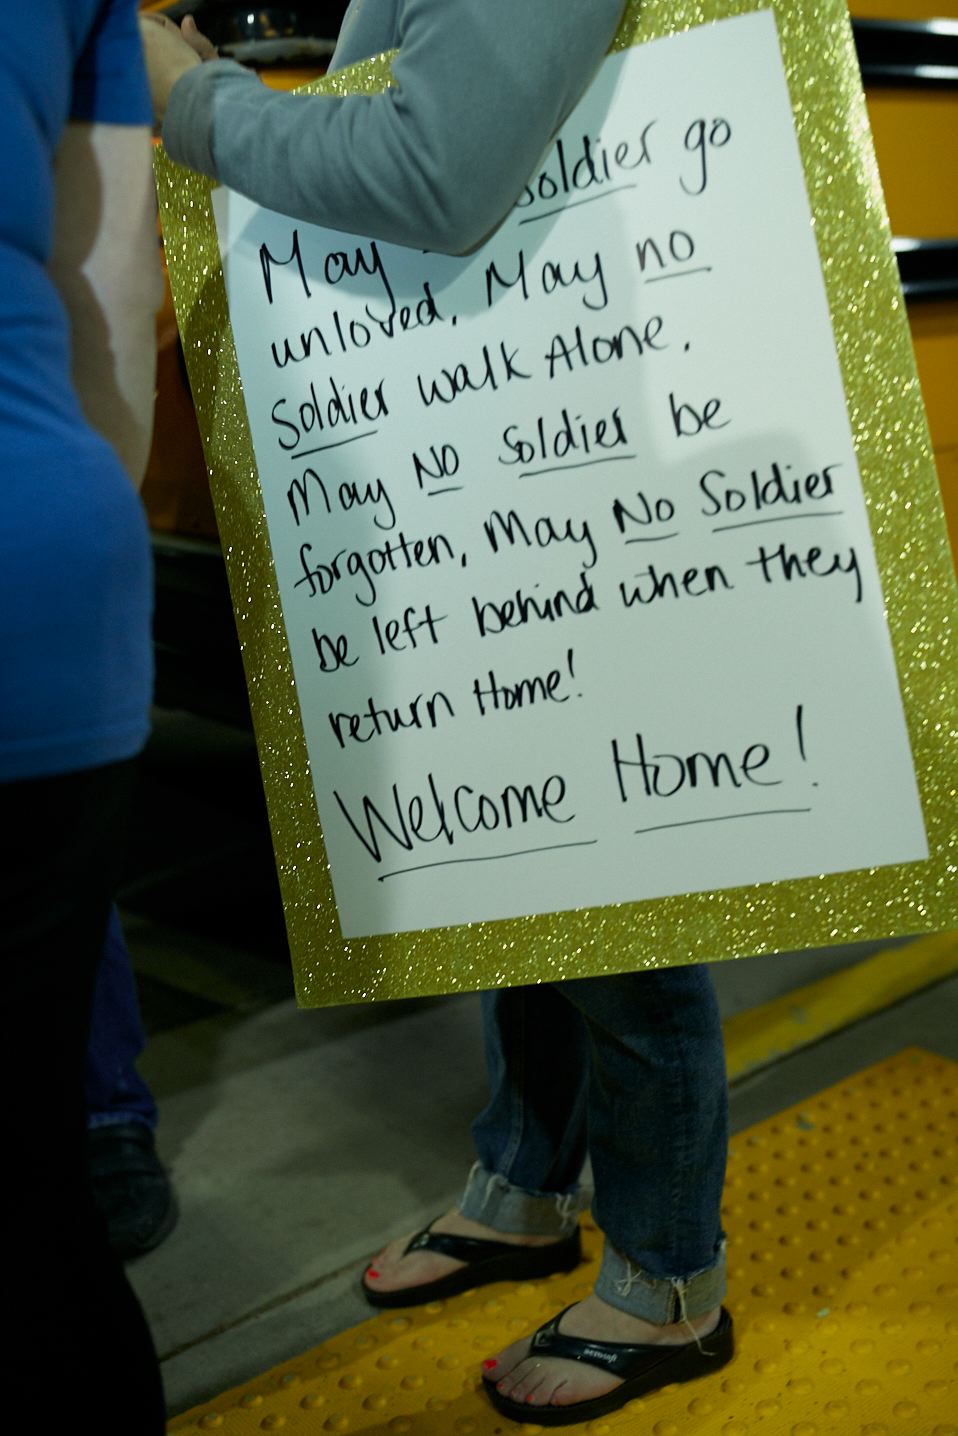 May soldier go
unloved. May no
Soldier walk Alone.
May No Soldier be
forgotten, May No Soldier
be left behind when they
return Home!
Welcome Home!